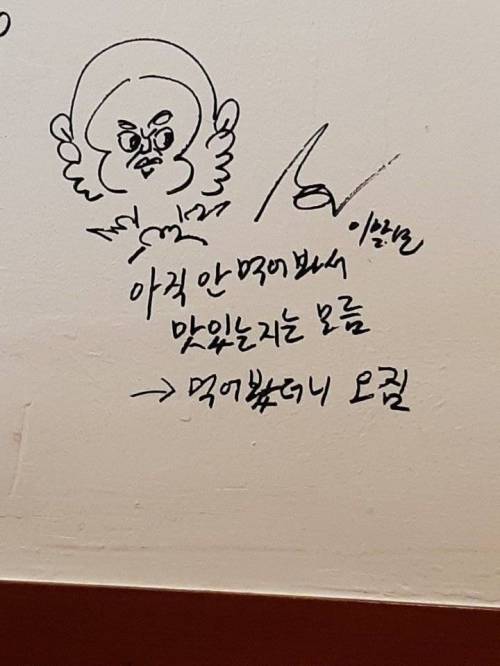 이말년
아직 안 먹어봐서
맛있는지는 모름
→ 먹어봤더니 오짐